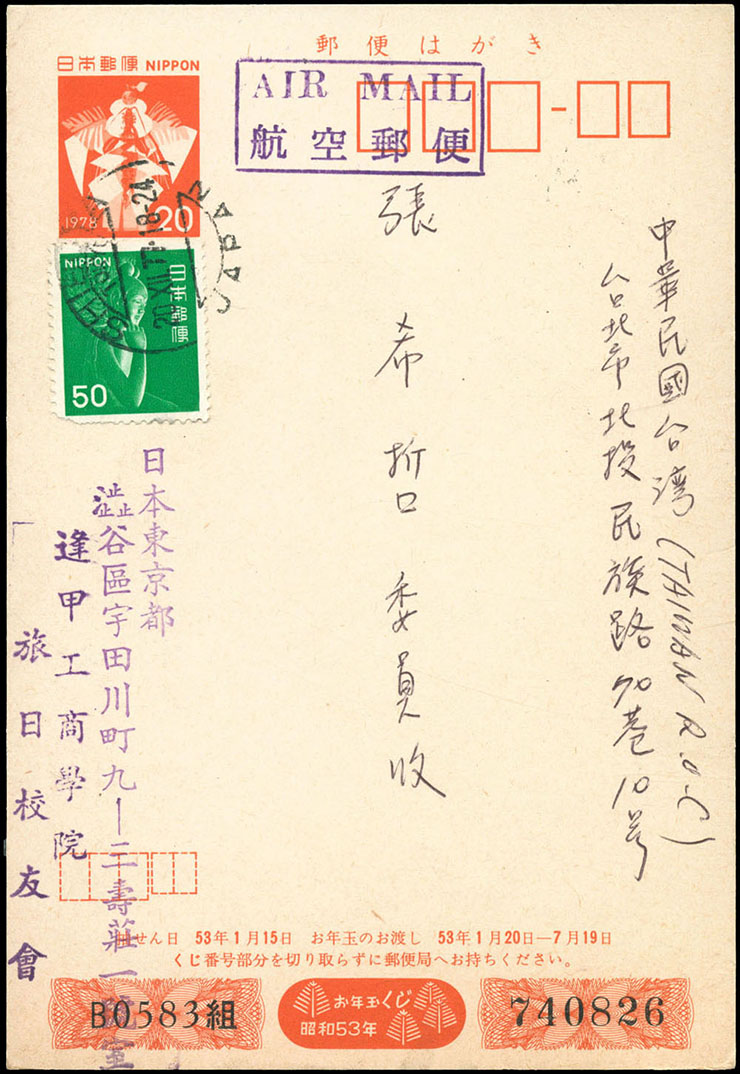 郵便はがき
日本郵便 NIPPON
1978 20
AIR MAIL
航空郵便
NIPPON
日本郵便
50
JAPAN
18-24
中華民國台湾(TAIWAN R.O.C)
台北市北投民族路70巷10号
張希哲委員收
日本東京都
澁谷區宇田川町九ー三壽莊一號室
逢甲工商學院
旅日校友會
せん日 53年1月15日 お年玉のお渡し 53年1月20日—7月19日
くじ番号部分を切り取らずに郵便局へお持ちください。
B0583組
お年玉くじ
昭和53年
740826